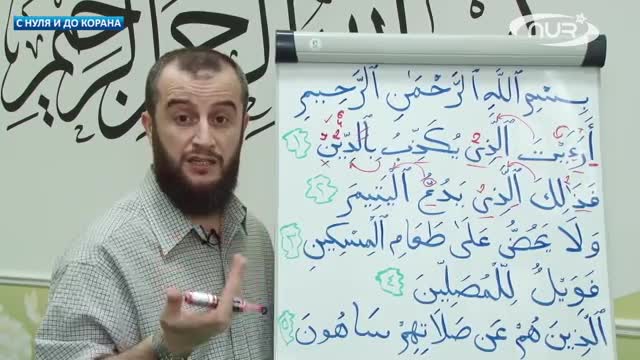 С НУЛЯ И ДО КОРАНА
NUR
بِسْمِ ٱللَّهِ ٱلرَّحْمَٰنِ ٱلرَّحِيمِ
أَرَءَيْتَ ٱلَّذِى يُكَذِّبُ بِٱلدِّينِ ١
فَذَٰلِكَ ٱلَّذِى يَدُعُّ ٱلْيَتِيمَ ٢
وَلَا يَحُضُّ عَلَىٰ طَعَامِ ٱلْمِسْكِينِ ٣
فَوَيْلٌ لِّلْمُصَلِّينَ ٤
ٱلَّذِينَ هُمْ عَن صَلَاتِهِمْ سَاهُونَ ٥